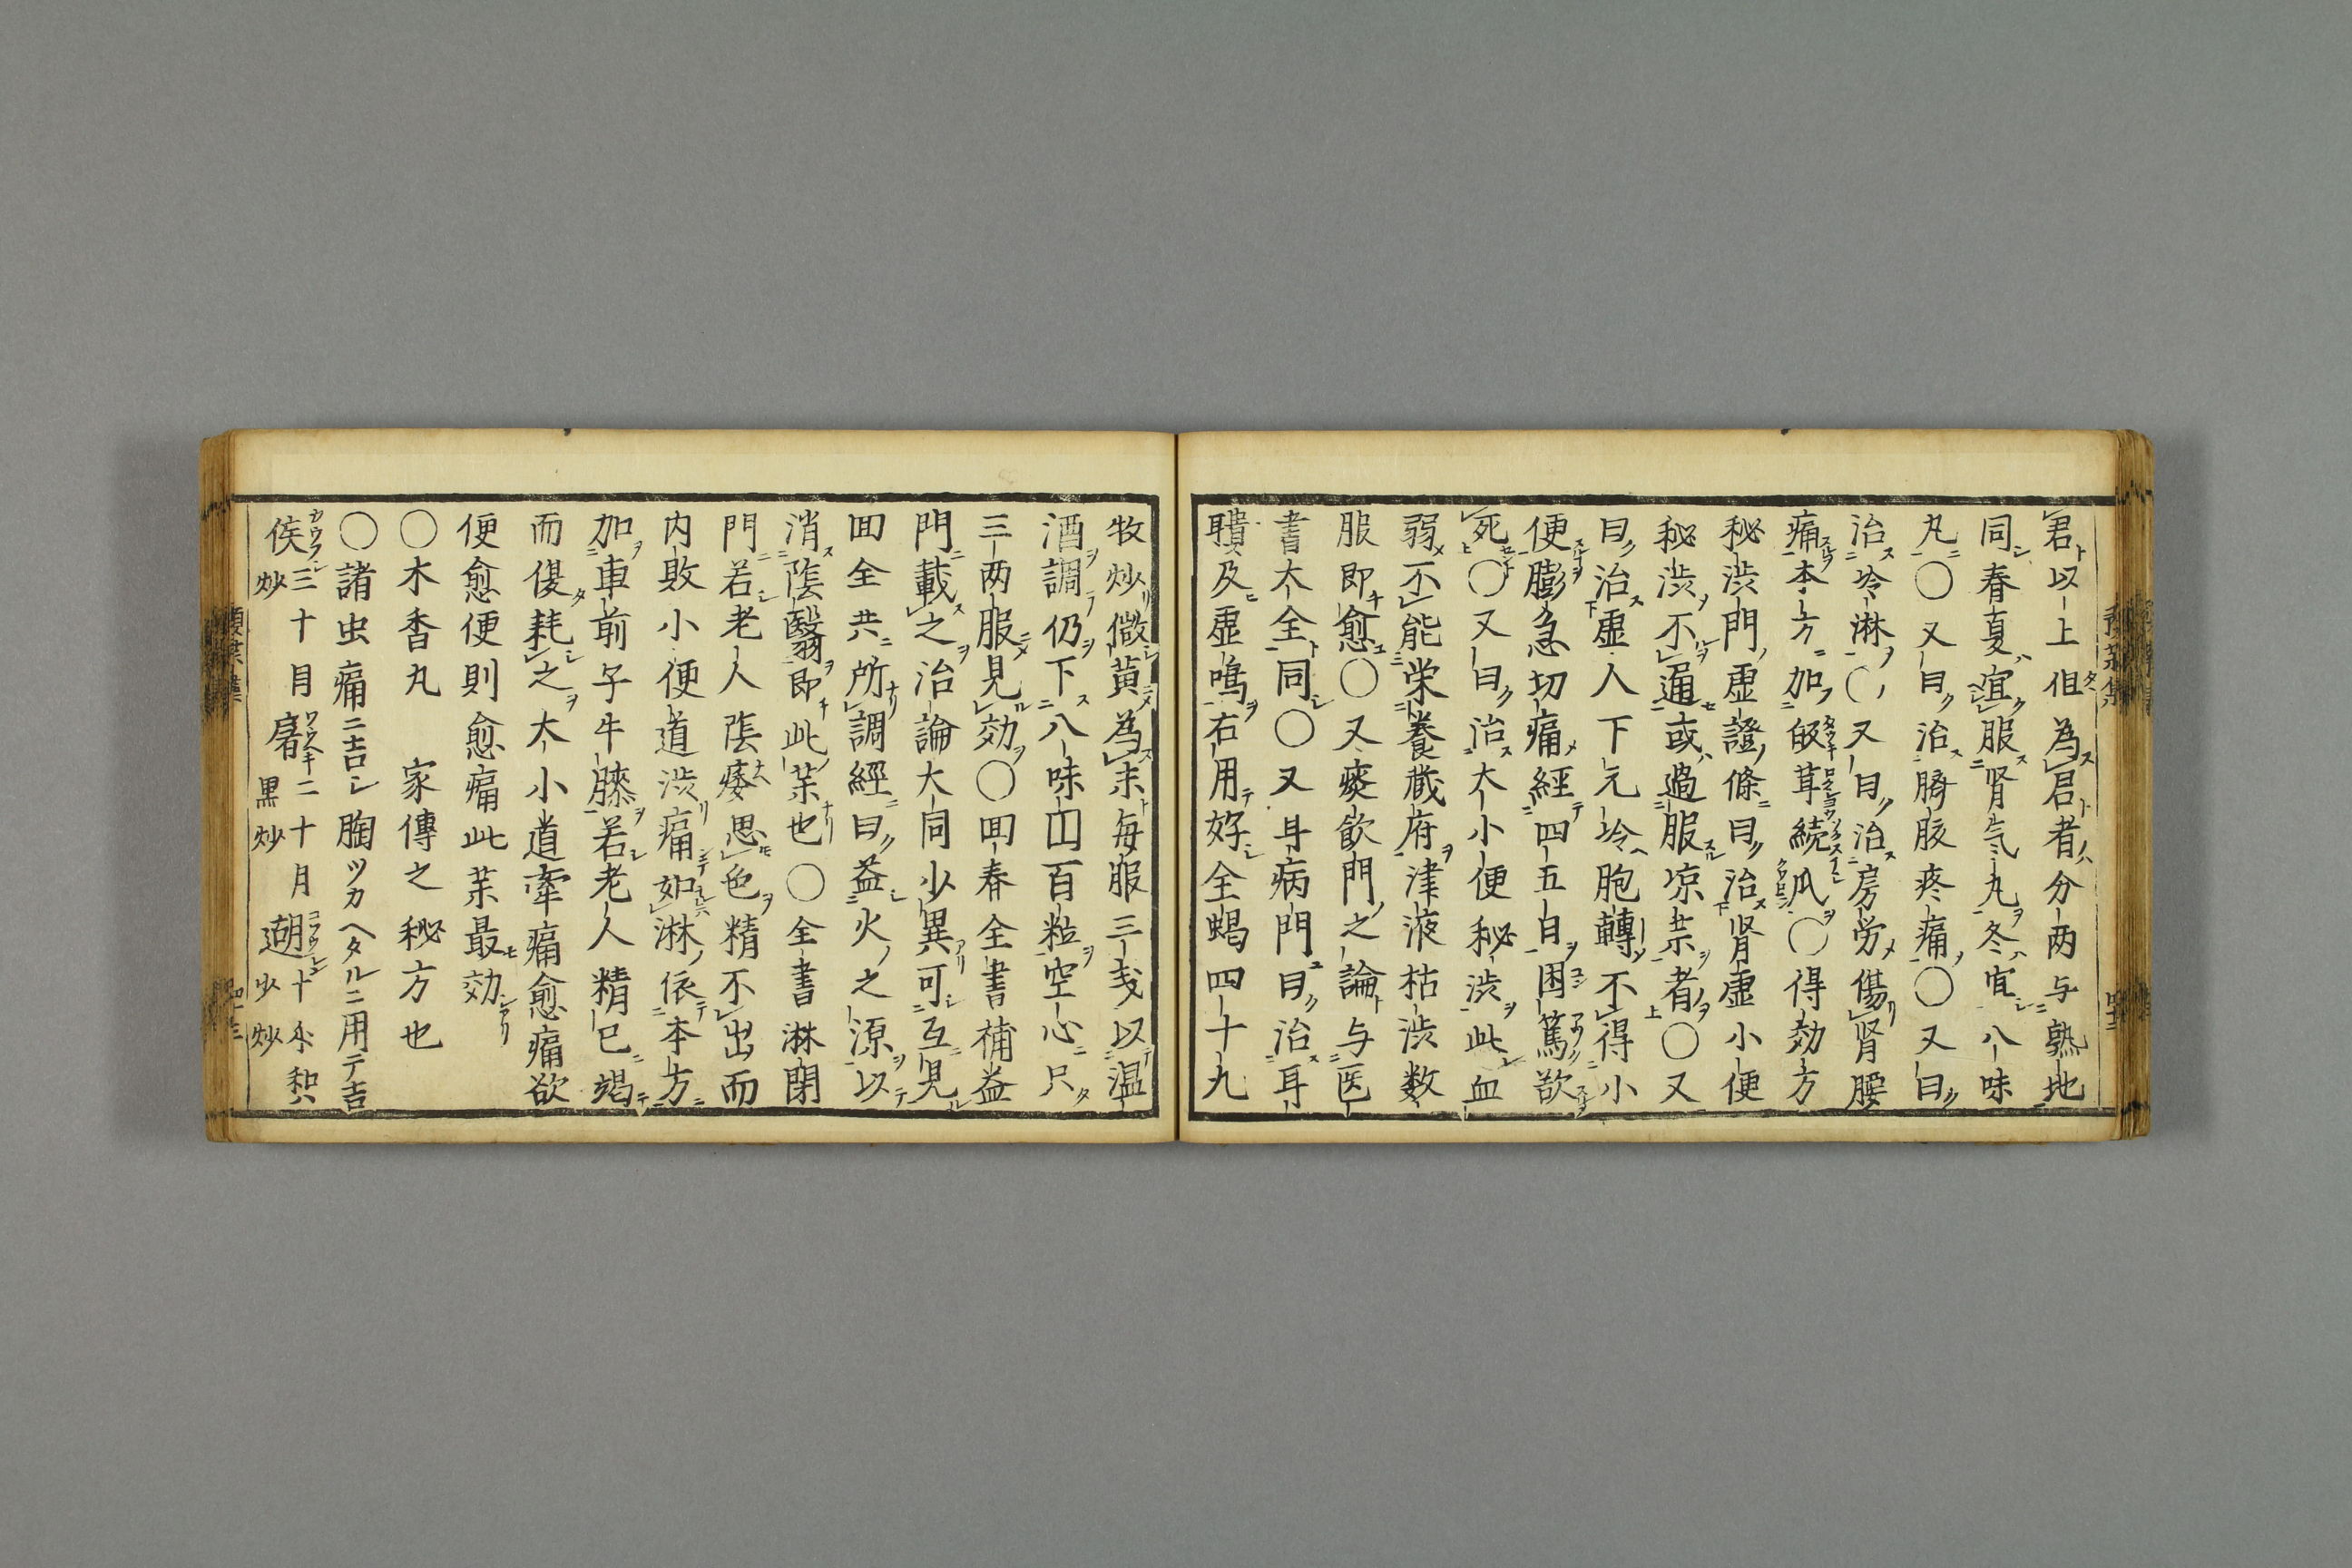 君以上但為君者分両与熟地
同春夏宜服腎気丸冬宜八味
丸〇又曰治臍胲疼痛〇又曰
治冷淋〇又曰治房労傷腎腰
痛本方加皈茸続瓜〇得効方
秘渋門虚證條曰治腎虚小便
秘渋不通或過服凉茶者〇又
曰治虚人下元冷胞轉不得小
便膨急切痛經四五日困篤欲
死〇又曰治大小便秘渋此血
弱不能栄養藏府津液枯渋数
服即愈〇又痰飲門之論与医
書大全同〇又耳病門曰治耳
聵及虚鳴右用好全蝎四十九
牧炒微黄為末毎服三戔以温
酒調仍下八味四百粒空心只
三両服見効〇回春全書補益
門載之治論大同少異可互見
回全共所調經曰益火之源以
消陰翳即此茶也〇全書淋閉
門若老人陰痿思色精不出而
内敗小便道渋痛如淋依本方
加車前子牛膝若老人精已竭
而復耗之大小道牽痛愈痛欲
便愈便則愈痛此茶最効
〇木香丸 家傳之秘方也
〇諸虫痛ニ吉シ胸ツカヘタルニ用テ吉